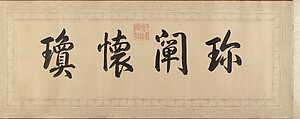 珎闡懷瓊